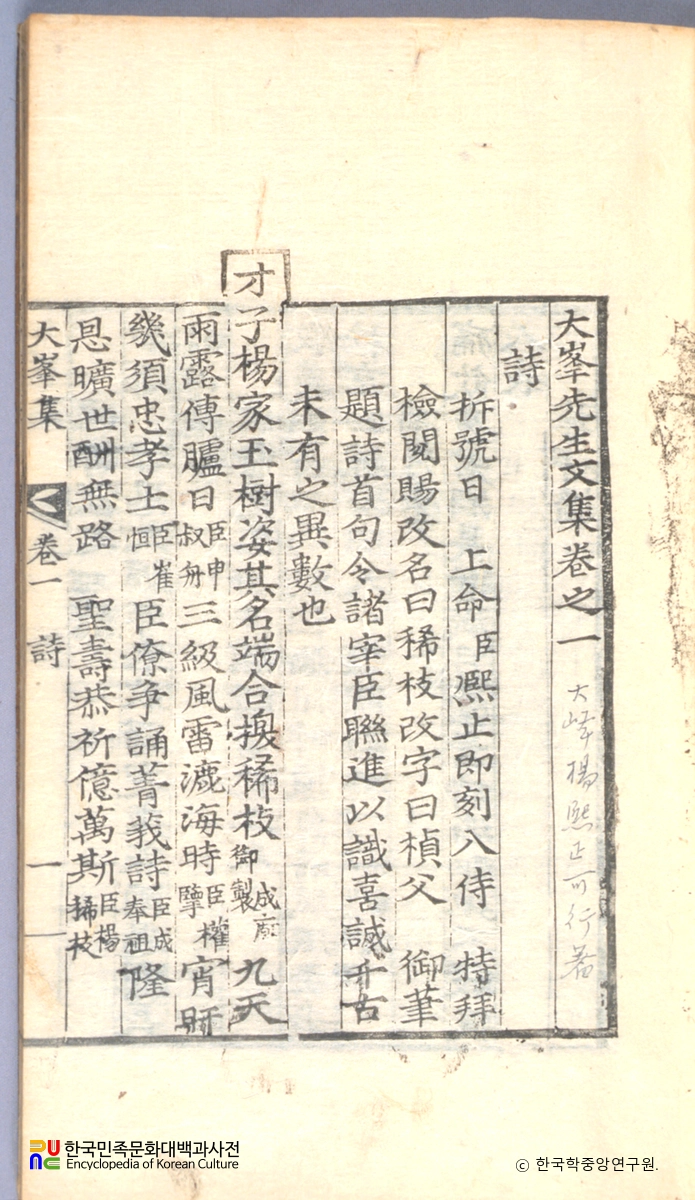 大峯先生文集卷之一
大峰楊熙止可行著
詩
拆號日 上命臣熙止即刻入侍 特拜
檢閱賜改名曰稀枝改字曰楨父 御筆
題詩首句令諸宰臣聯進以識喜誠千古
未有之異數也
才子楊家玉樹姿其名端合換稀枝成廟御製九天
雨露傳臚日臣申叔舟三級風雷漉海時臣權擥宵旰
幾須忠孝士臣崔恒臣僚爭誦菁莪詩臣成奉祖隆
恩曠世酬無路 聖壽恭祈億萬斯臣楊稀枝
大峯集 卷一 詩 一
한국민족문화대백과사전
Encyclopedia of Korean Culture
ⓒ 한국학중앙연구원.